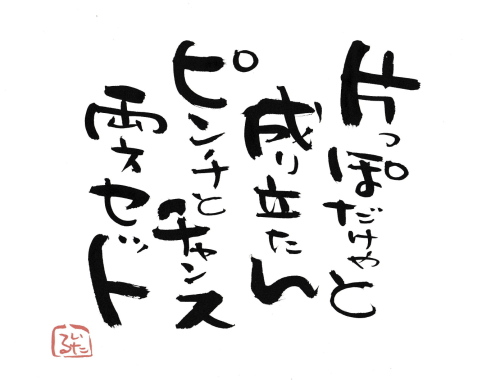 片っぽだけやと
成り立たん
ピンチとチャンス
両方セット